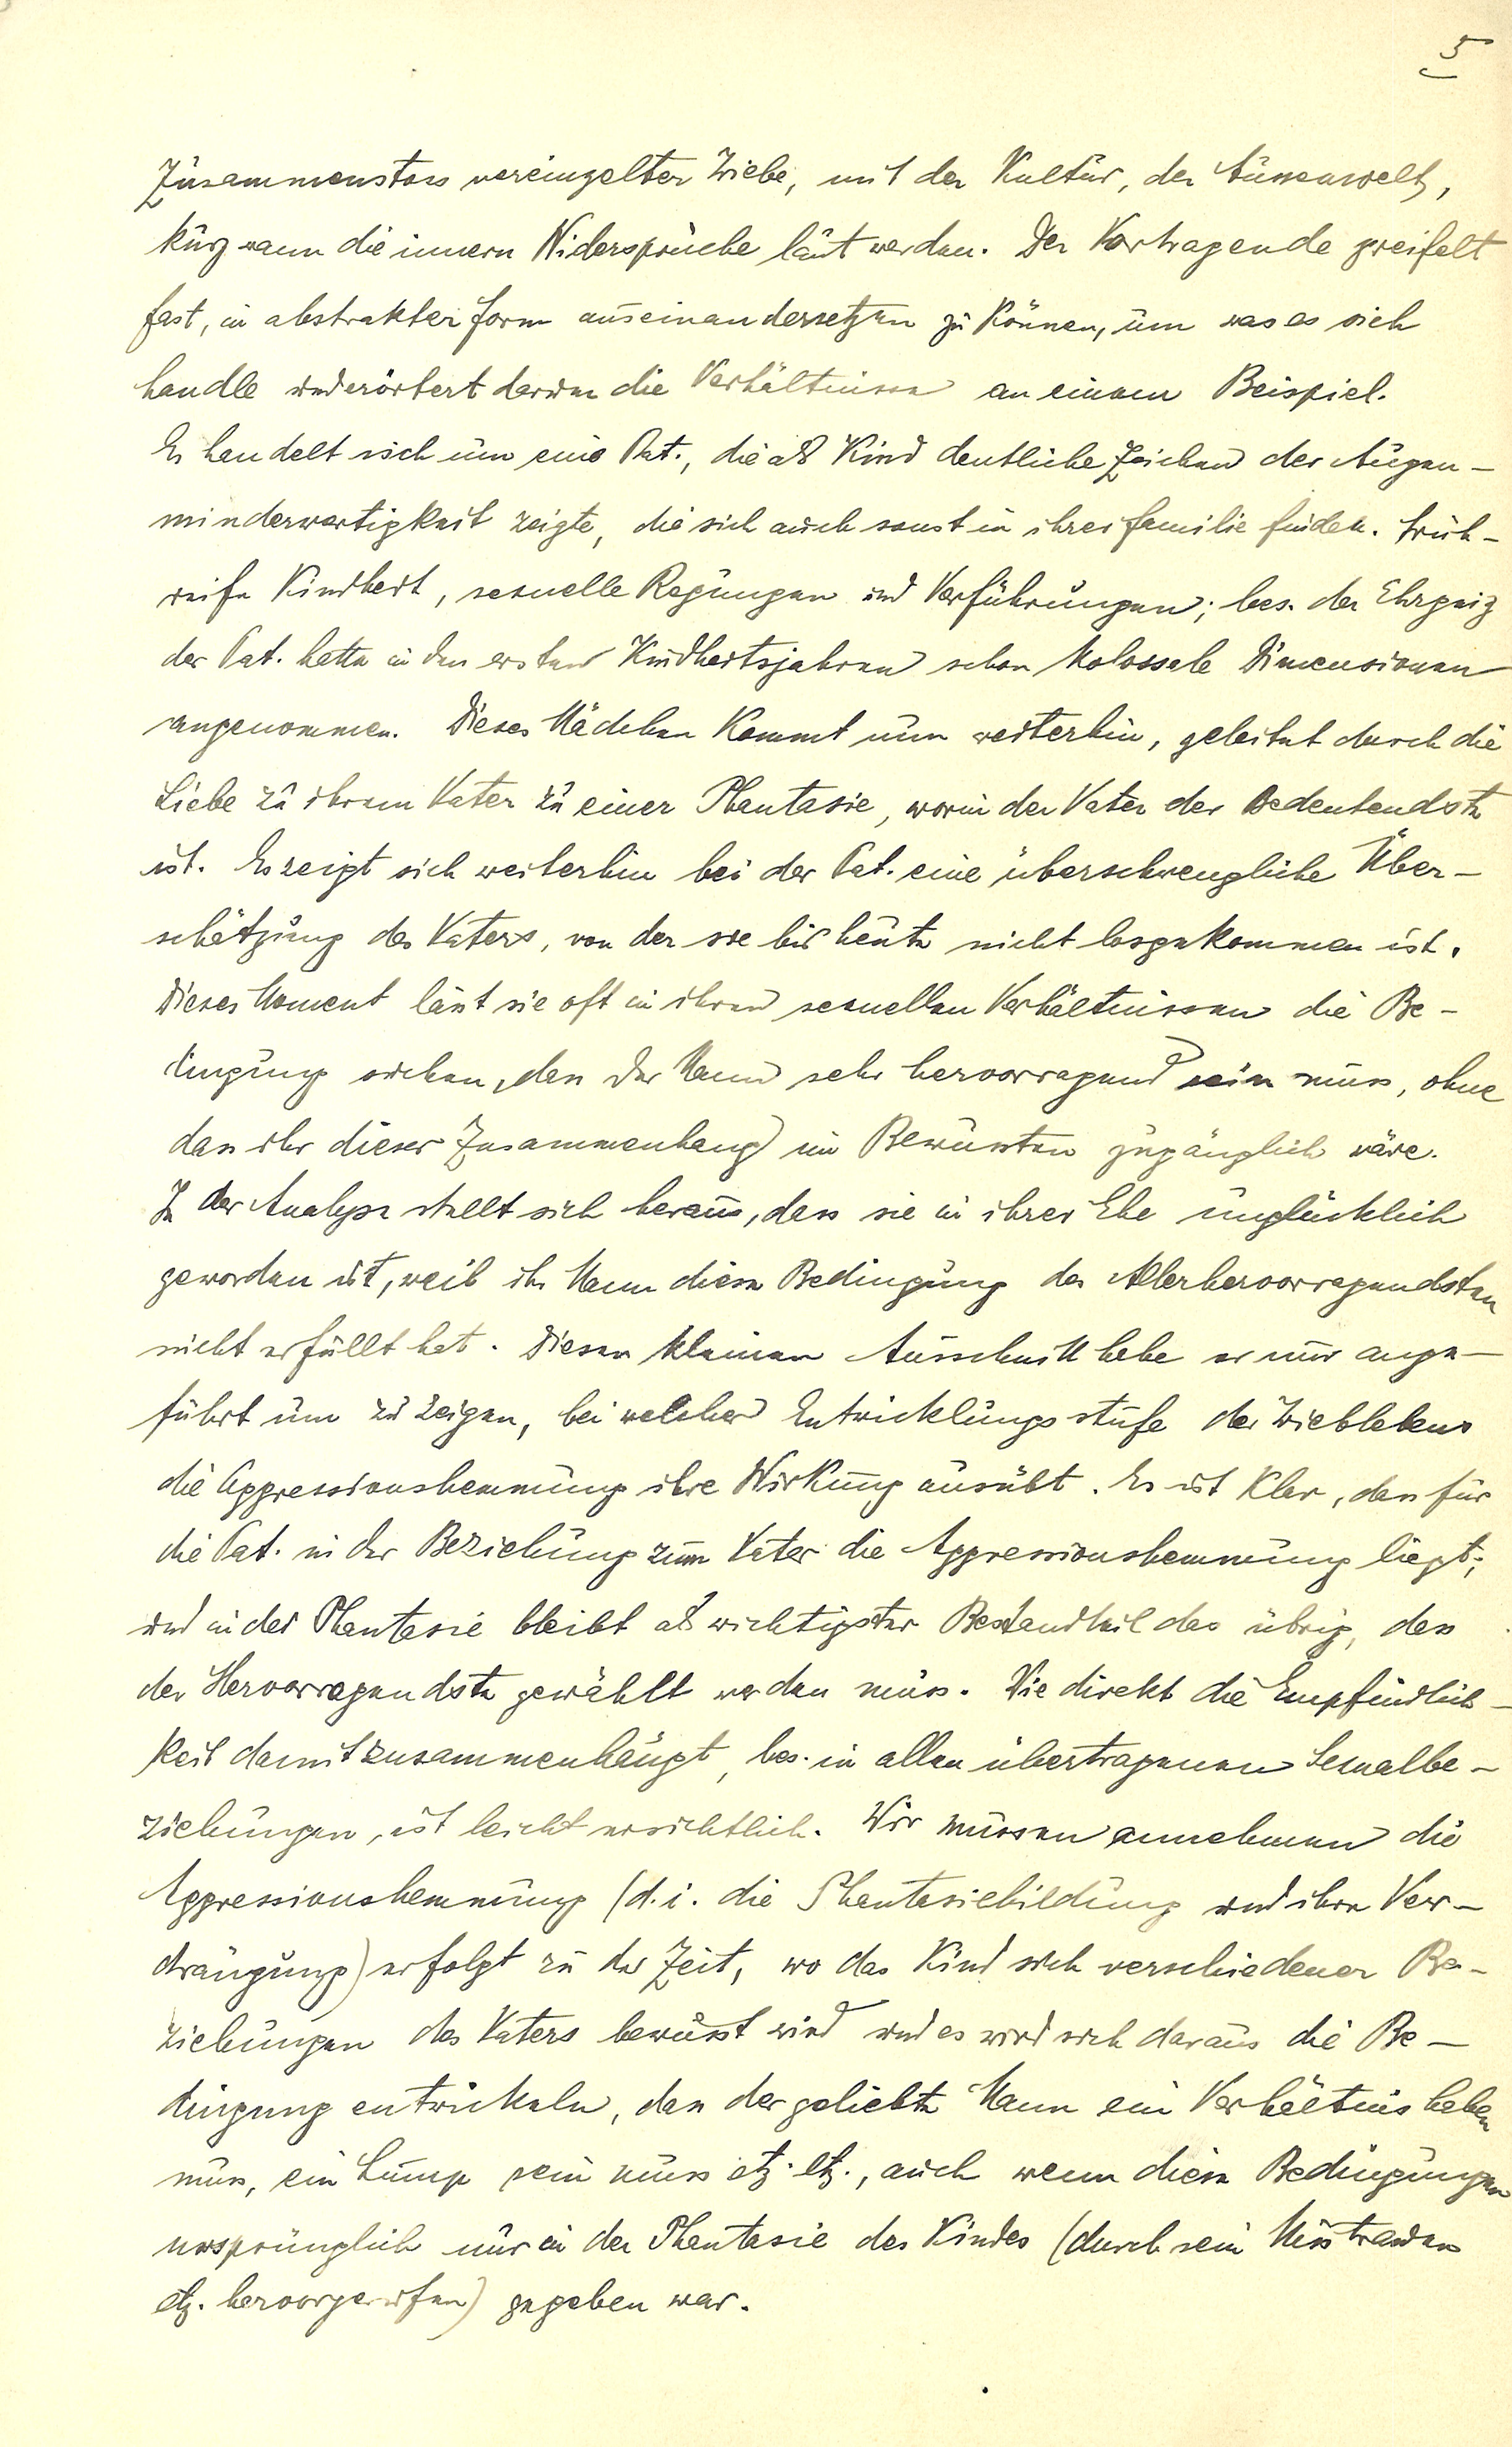 5
Zusammenstoss vereinzelter Triebe, mit der Kultur, der Aussenwelt,
kurz wann die innern Widersprüche laut werden. Der Vortragende zweifelt
fast, in abstrakter Form auseinandersetzen zu können, um was es sich
handle und erörtert darum die Verhältnisse an einem Beispiel.
Es handelt sich um eine Pat., die als Kind deutliche Zeichen der Augen-
minderwertigkeit zeigte, die sich auch sonst in ihrer Familie finden. Früh-
reife Kindheit, sexuelle Regungen und Verführungen; bes. der Ehrgeiz
der Pat. hatte in den ersten Kindheitsjahren schon kolossale Dimensionen
angenommen. Dieses Mädchen kommt nun weiterhin, geleitet durch die
Liebe zu ihrem Vater zu einer Phantasie, worin der Vater der Bedeutendste
ist. Es zeigt sich weiterhin bei der Pat. eine überschwengliche Über-
schätzung des Vaters, von der sie bis heute nicht losgekommen ist.
Dieses Moment lässt sie oft in ihren sexuellen Verhältnissen die Be-
dingung suchen, dass der Mann sehr hervorragend sein muss, ohne
dass ihr dieser Zusammenhang im Bewussten zugänglich wäre.
In der Analyse stellt sich heraus, dass sie in ihrer Ehe unglücklich
geworden ist, weil ihr Mann diese Bedingung des Allerhervorragendsten
nicht erfüllt hat. Diesen kleinen Ausschnitt habe er nur ange-
führt um zu zeigen, bei welcher Entwicklungsstufe des Trieblebens
die Aggressionshemmung ihre Wirkung ausübt. Es ist klar, dass für
die Pat. in der Beziehung zum Vater die Aggressionshemmung liegt;
und in der Phantasie bleibt als wichtigster Bestandteil das übrig, dass
der Hervorragendste gewählt werden muss. Wie direkt die Empfindlich-
keit damit zusammenhängt, bes. in allen übertragenen Sexualbe-
ziehungen, ist leicht ersichtlich. Wir müssen annehmen die
Aggressionshemmung (d.i. die Phantasiebildung und ihre Ver-
drängung) erfolgt zu der Zeit, wo das Kind sich verschiedener Be-
ziehungen des Vaters bewusst wird und es wird sich daraus die Be-
dingung entwickeln, dass der geliebte Mann ein Verhältnis haben
muss, ein Lump sein muss etz. etz., auch wenn diese Bedingungen
ursprünglich nur in der Phantasie des Kindes (durch sein Misstrauen
etz. hervorgerufen) gegeben war.